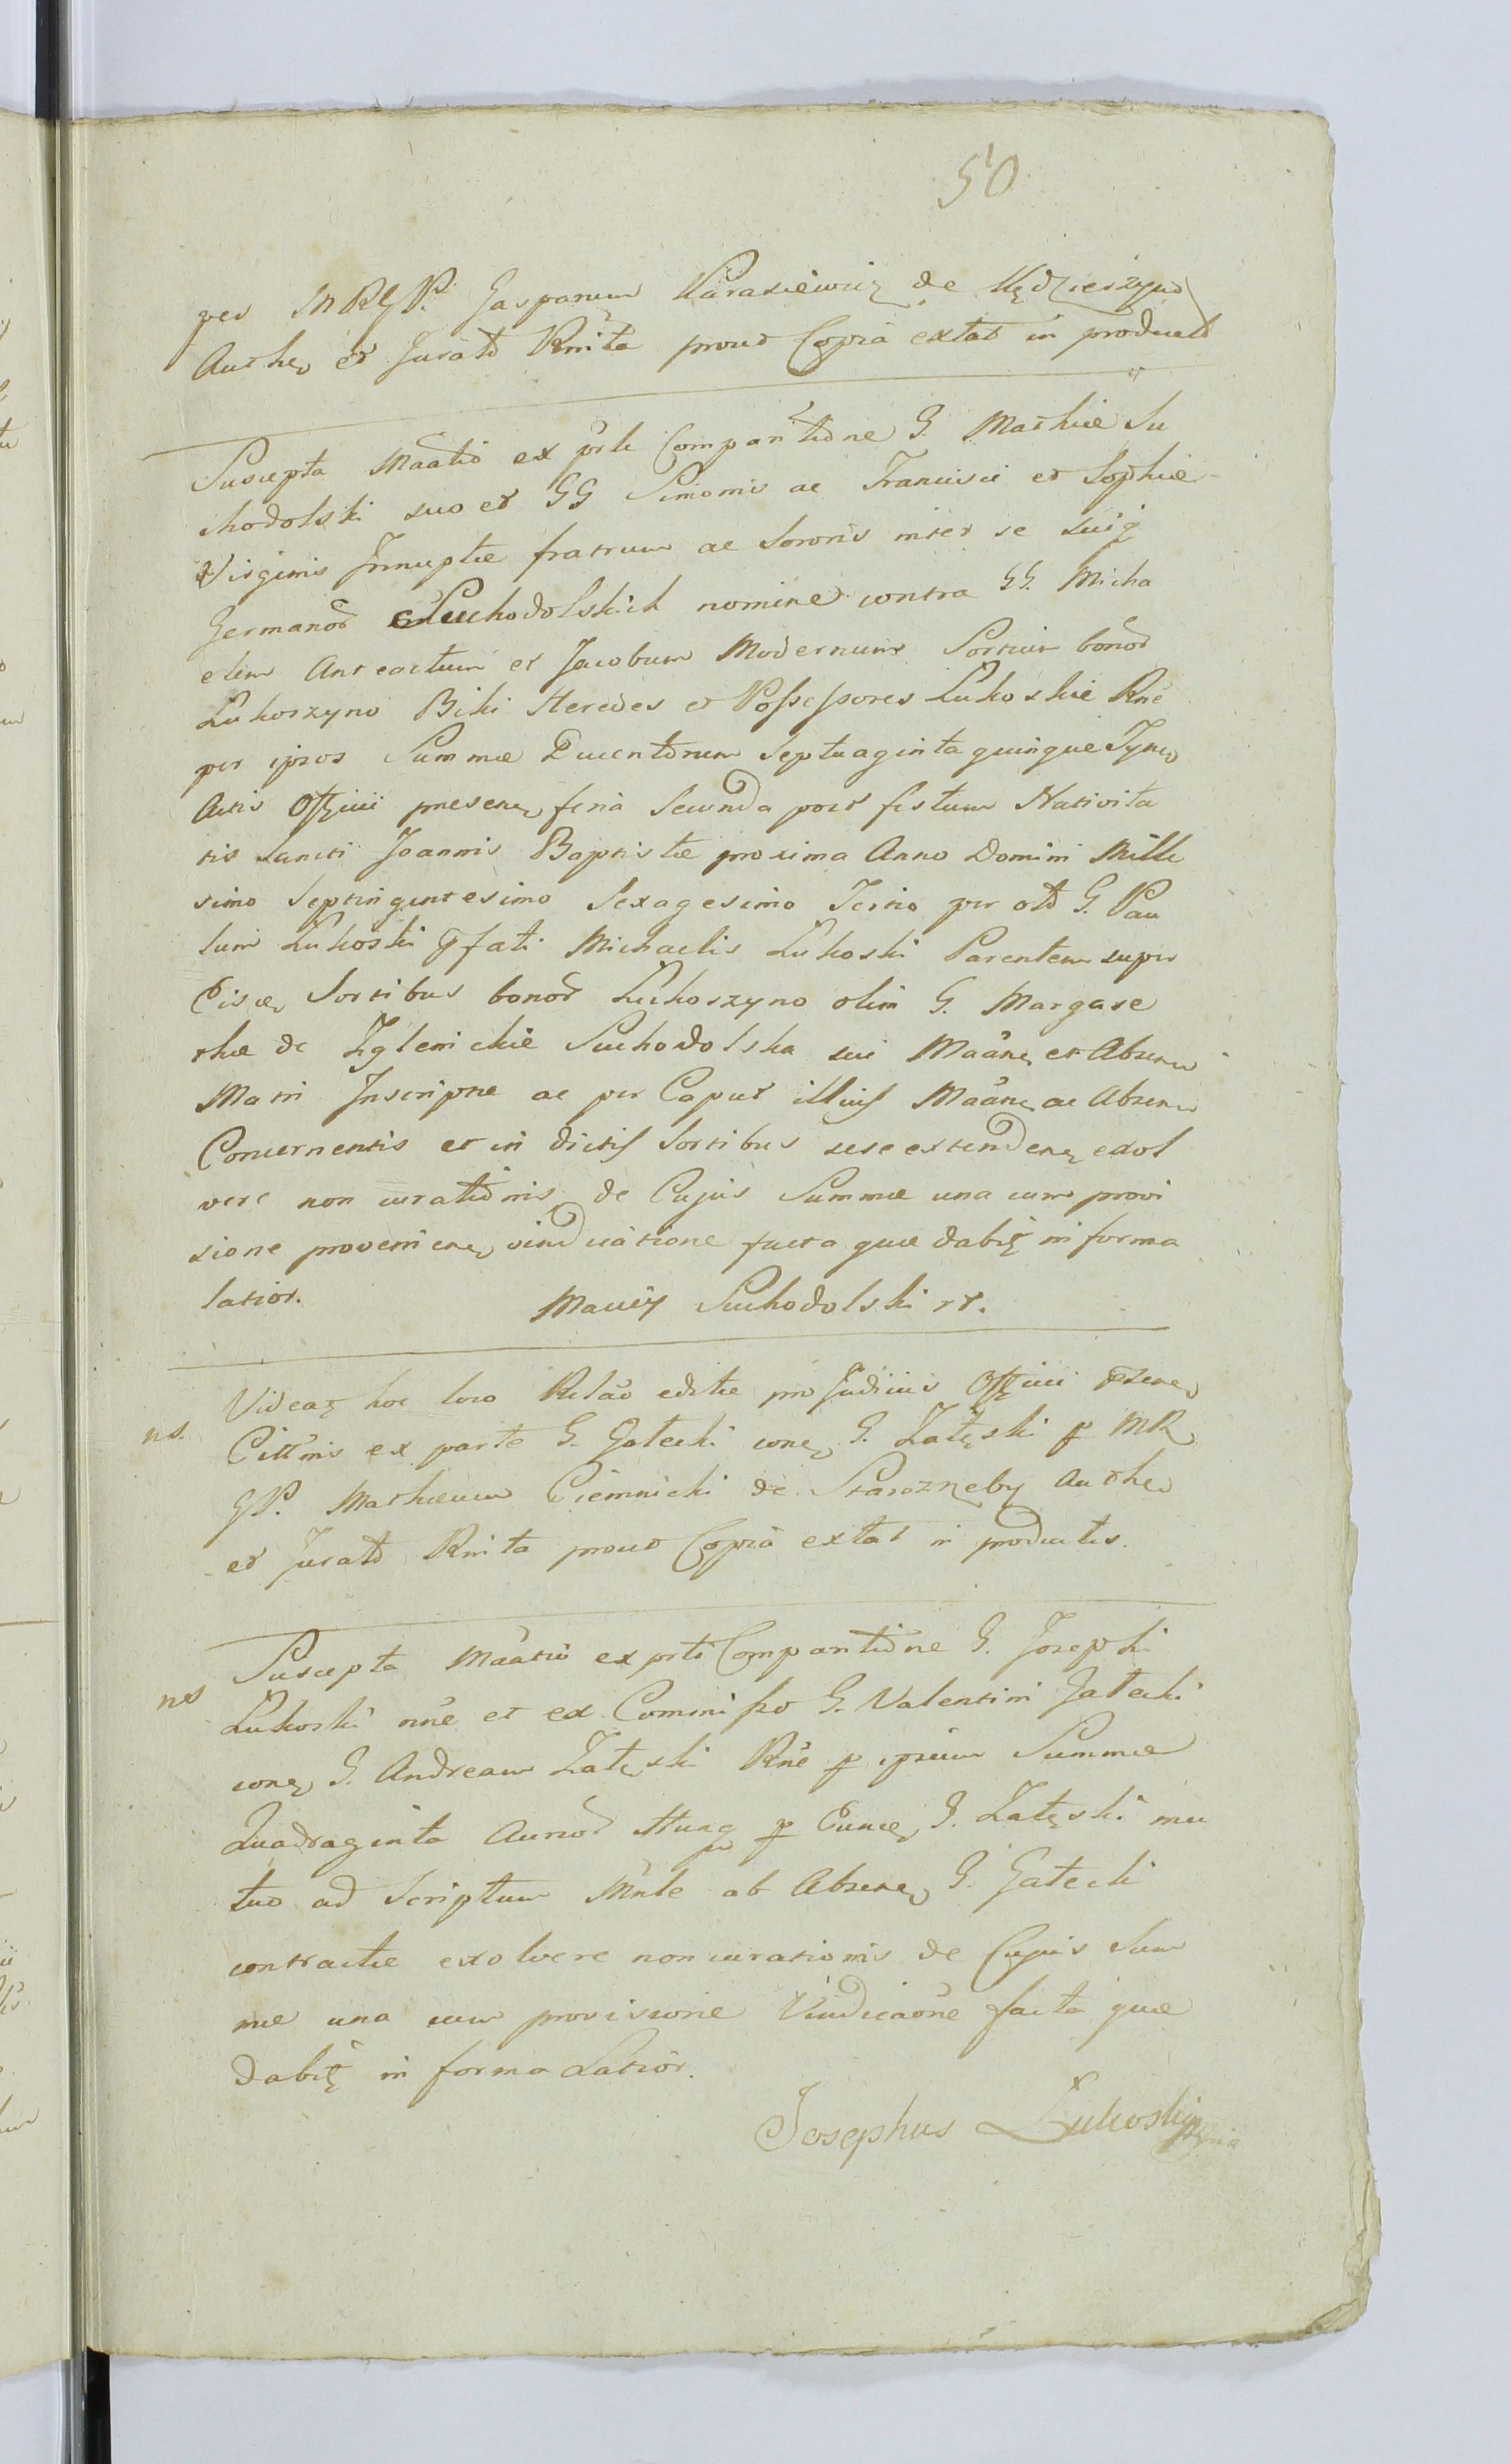 50
per MRGP. Gasparum Karasiewicz de
Authen et Jurato Rnita prout Copia extat in product
Suscepta Maatio ex prte Comparitione G. Mathiæ Su
chodolski suo et GG Simonis ac Francisci et Sophiæ
Virginis Innuptæ fratrum ac Sororis inter se
Germanor Suchodolskich nomine contra GG. Micha
elem Anteactum et Jacobum Modernum Sortium bonor
Lukoszyno Biki Heredes et Possessores Lukoskie Rne
per ipsos Summæ Ducentorum Septuaginta quinque
Actis Offficii presen feria Secunda post festum Nativita
tis Sancti Joannis Baptistæ proxima Anno Domini Mille
simo Septingentesimo Sexagesimo Tertio per olim G. Pau
lum Lukoski pfati Michaelis Lukoski Parentem super
Eisd Sortibus bonor Lukoszyno olim G. Margare
thæ de Zglenickie Suchodolska sui Maan et Absen
Matri Inscripne ac per Caput illius Maan ac Absen
Concernentis et in dictis Sortibus sese extenden exol
vere non curationis de Cujus Summæ una cum provi
sione provenien vindicatione facta quæ dabit in forma
latior. Maciey Suchodolski
Videat hoc loco Relao editæ pro Judiciis Officii psen
ns. Cittnis ex parte G. Gałecki con G. Załęski p MR
GP. Mathæum Ciemnicki de Starozreby Authen
et Jurato Rnita prout Copia extat in productis.
Suscepta Maatio ex prte Comparitione G. Josephi
ns Lukoski nne et ex Commisso G. Valentini Gałecki
con G. Andream Załęski Rne p ipsum Summæ
Quadraginta Aureor Hung p Eund G. Załęski mu
tuo ad Scriptum Mnle ab Absen G. Gałecki
contractæ exolvere non curationis de Cujus Sum
mæ una cum provisione Vindicaone facta quæ
dabit in forma Latior.
Josephus Łukoski